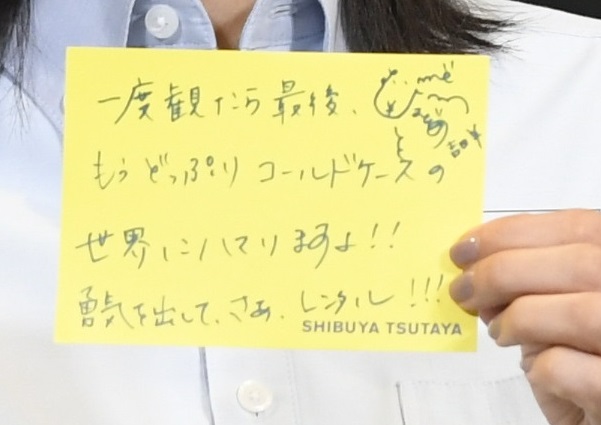 一度観たら最後、
もうどっぷりコールドケースの
世界にハマりますよ!!
勇気を出して、さあ、レンタル!!!
SHIBUYA TSUTAYA